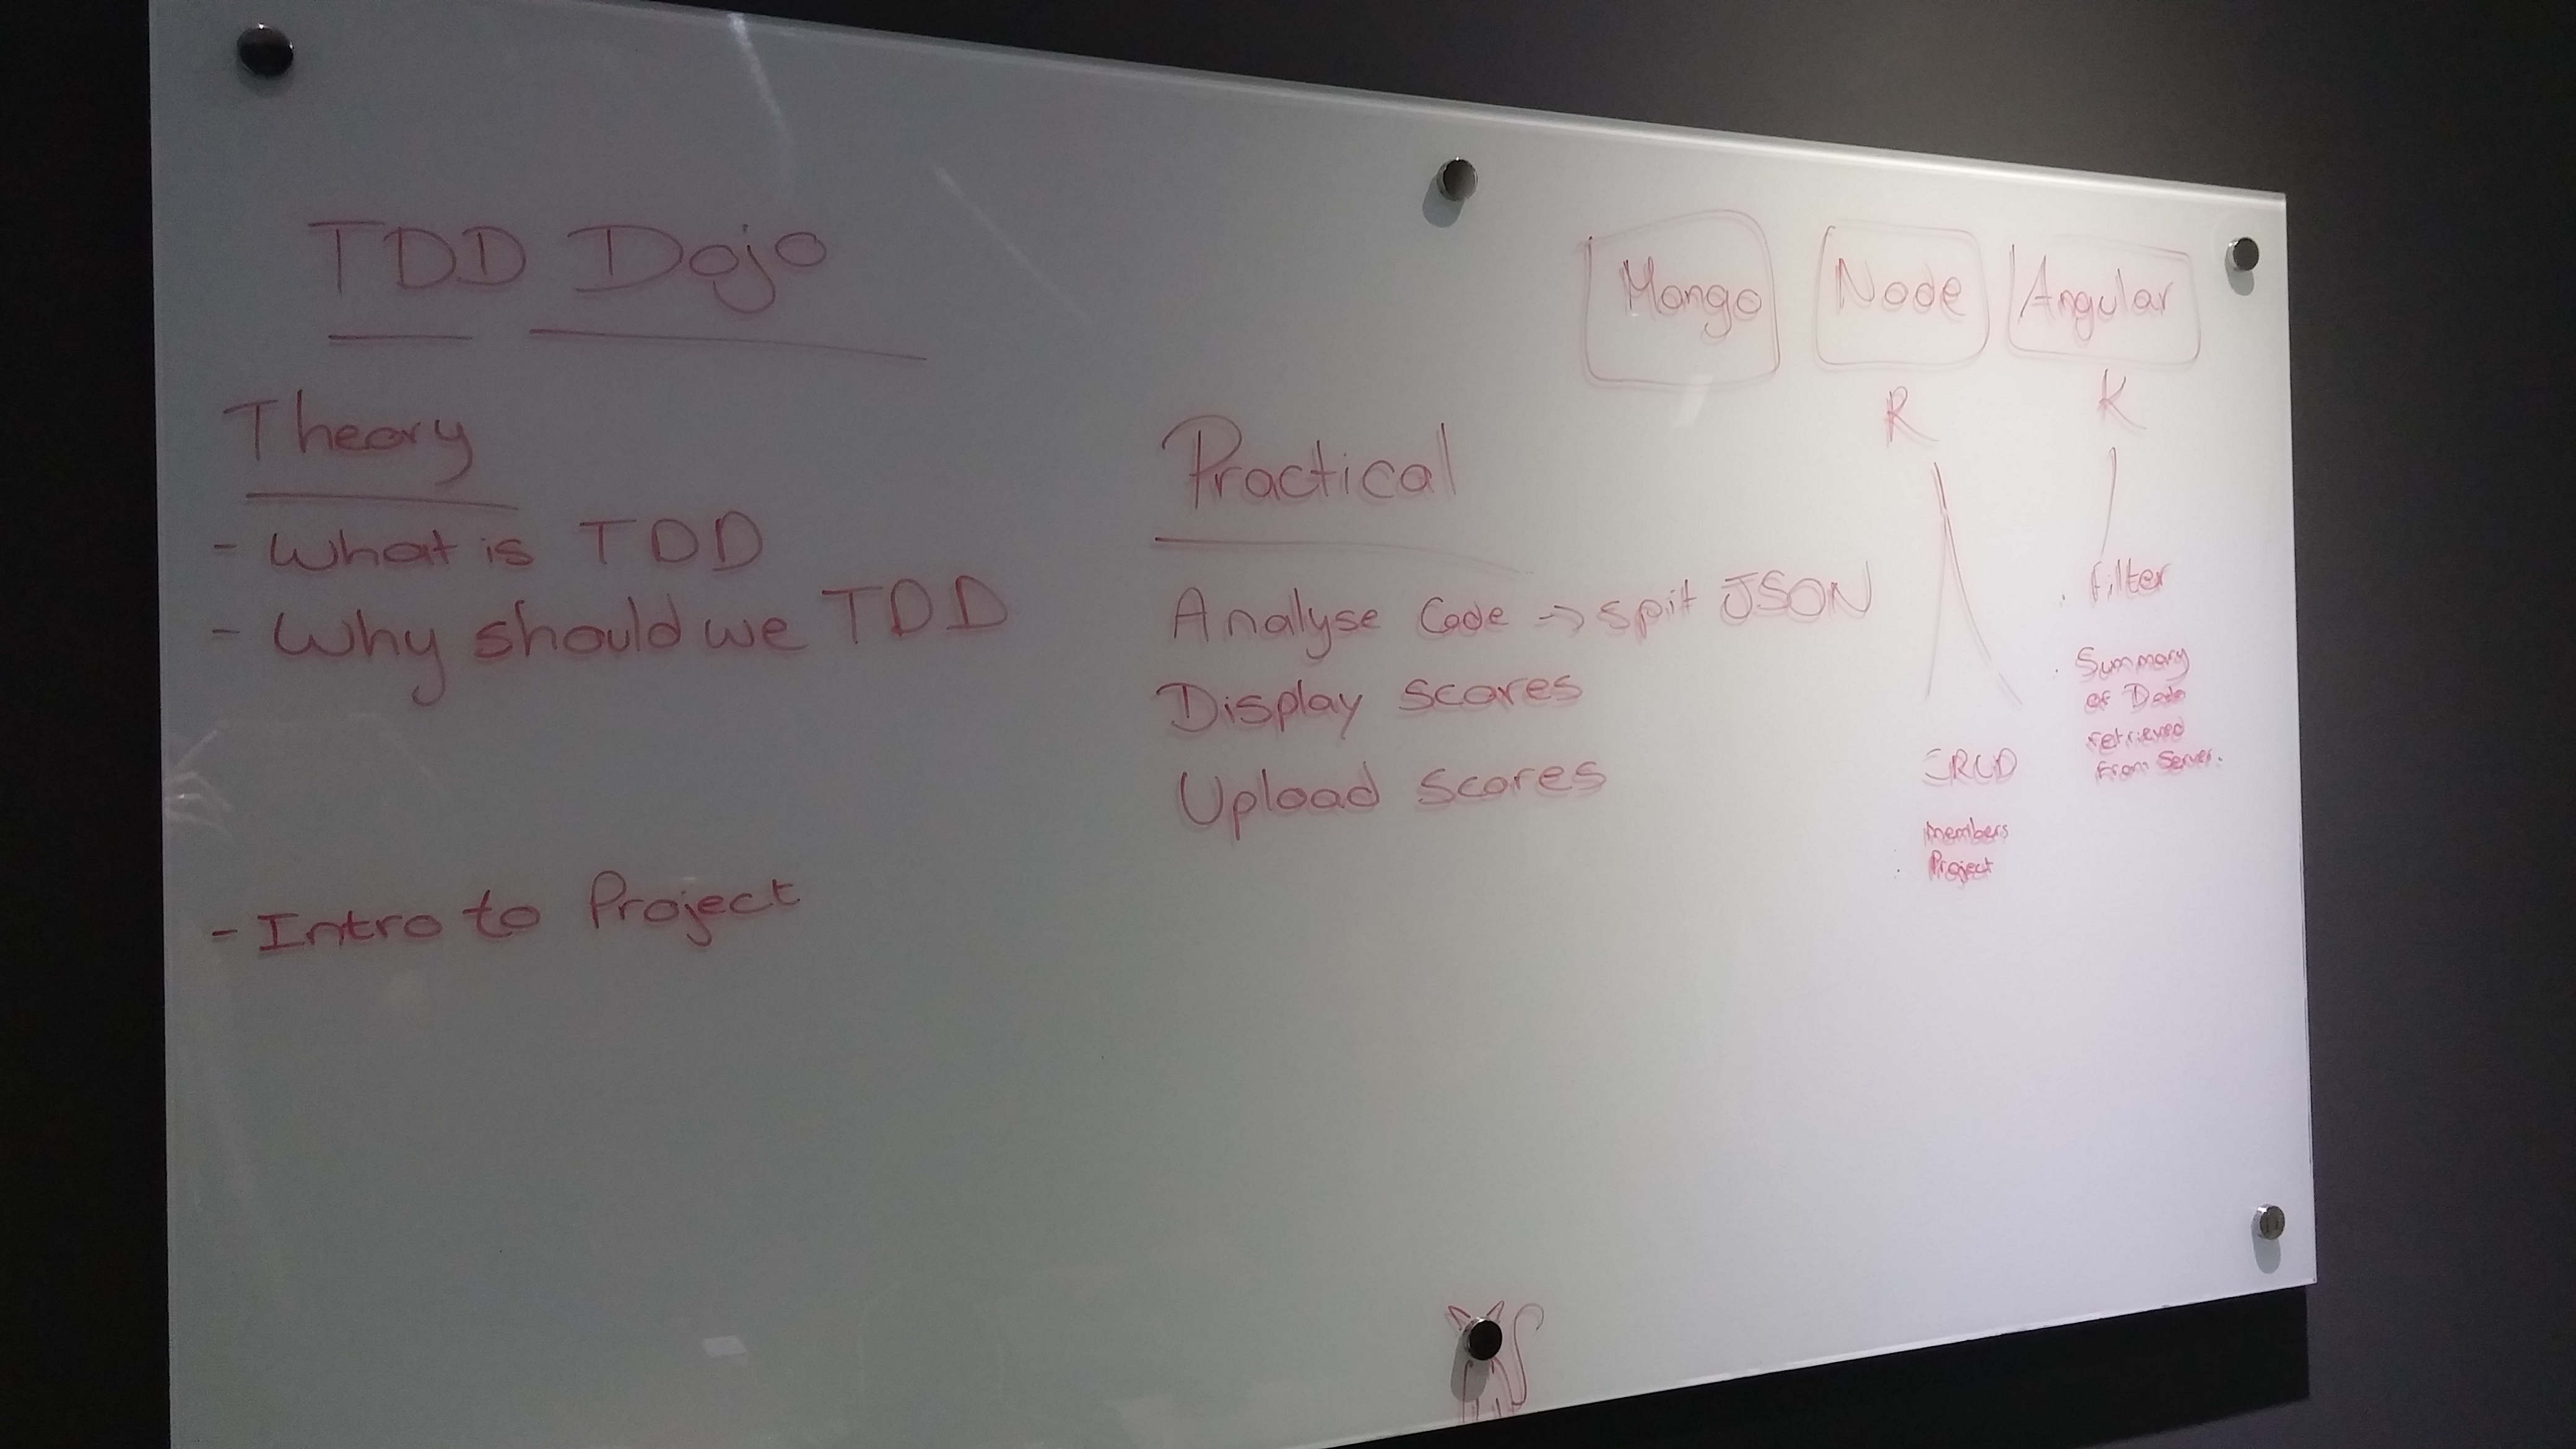 TDD Dojo
Theory
- What is TDD
- Why should we TDD
- Intro to Project
Practical
Analyse Code → spit JSON
Display scores
Upload scores
Mongo Node Angular
R K
CRUD
members
. Project
. filter
. Summary
of Data
retrieved
from Server.